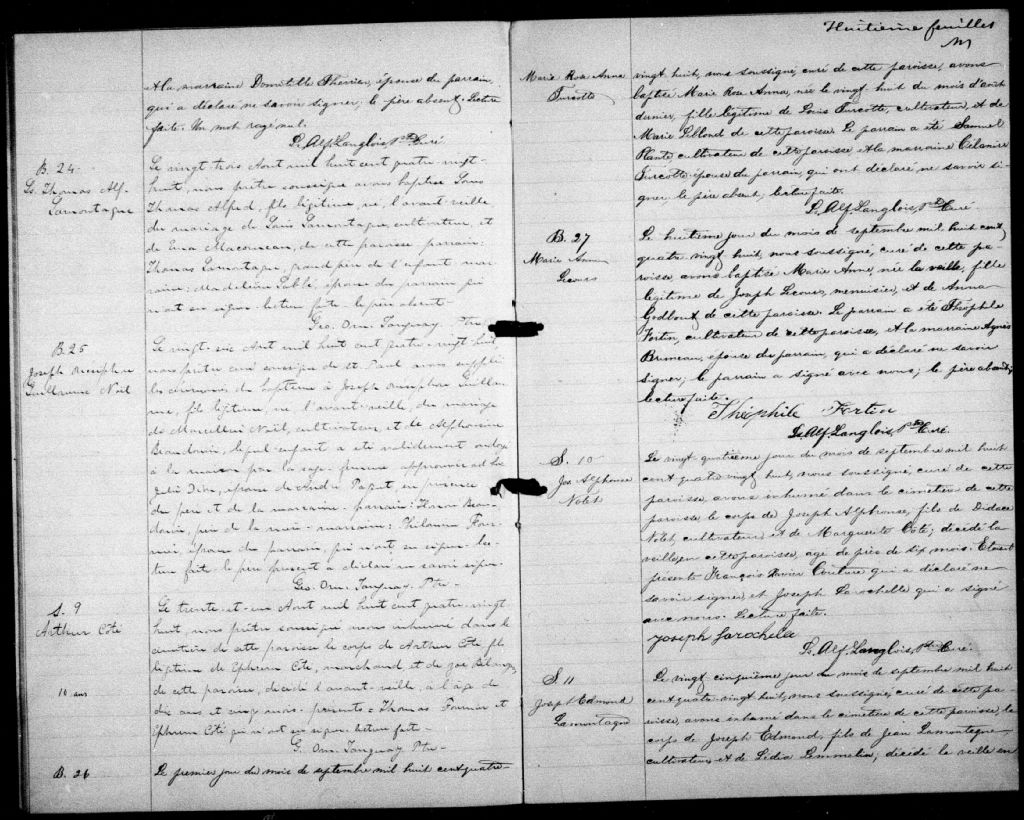 et la marraine Domitille Therrien, épouse du parrain,
qui a déclaré ne savoir signer; le père absent. Lecture
faite. Un mot rayé nul.
Ls. Alf. Langlois, Ptre Curé
B. 24
Ls. Thomas Alf.
Lamontagne
Le vingt trois Aout mil huit cent quatre-vingt-
huit, nous prêtre soussigné avons baptisé Louis
Thomas Alfred, fils légitime, né l'avant veille
du mariage de Louis Lamontagne, cultivateur, et
de de cette paroisse parrain:
Thomas Lamontagne, grand père de l'enfant mar-
raine: Madeleine épouse du parrain qui
n'ont su signer lecture faite le père absent-
Geo. Orn. Tanguay Ptre
B. 25
Joseph Onesiphore
Guillaume Noël
Le vingt-six Aout mil huit cent quatre-vingt huit
nous prêtre curé soussigné de St. Paul avons suppléé
les cérémonies du baptême à Joseph Onesiphore Guillau-
me, fils légitime, né l'avant-veille, du mariage
de Marcellin Noël, cultivateur, et de Alphonsine
Beaudoin, lequel enfant a été validement ondoyé
à la maison par la sage-femme approuvée ad hoc
Julie Dion, épouse de André Paquet, en présence
du père et de la marraine- parrain: Honoré Beau-
doin, marraine: Philomène Four-
nier, épouse du parrain, qui n'ont su signer lec-
ture faite le père présent a déclaré ne savoir signer-
Geo. Orn. Tanguay Ptre-
S. 9
Arthur Côté
10 ans
Le trente-et-un Aout mil huit cent quatre-vingt
huit, nous prêtre soussigné avons inhumé dans le
cimetière de cette paroisse le corps de Arthur Côté fils
légitime de Ephrem Côté, marchand, et de Zoé Bélanger
de cette paroisse, décédé l'avant-veille, à l'âge de
dix ans et cinq mois- présents: Thomas Fournier et
Ephrem Côté qui n'ont su signer lecture faite-
G. Orn. Tanguay Ptre-
B. 26
Le premier jour du mois de septembre mil huit cent quatre-
Huitième feuillet
Marie Rose Anna
Turcotte
vingt huit, nous soussigné, curé de cette paroisse, avons
baptisé Marie Rose Anna, née le vingt huit du mois d'août
dernier, fille légitime de Louis Turcotte, cultivateur, et de
Marie Leblond de cette paroisse. Le parrain a été Samuel
Plante cultivateur de cette paroisse, et la marraine Célanire
Turcotte épouse du parrain, qui ont déclaré ne savoir si-
gner, le père absent, lecture faite.
Ls. Alf. Langlois, Ptre Curé.
B. 27
Marie Anne
Lecours
Le huitième jour du mois de septembre mil huit cent
quatre vingt huit, nous soussigné, curé de cette pa-
roisse avons baptisé Marie Anne, née la veille, fille
légitime de Joseph Lecours, menuisier, et de Anna
Godbout de cette paroisse. Le parrain a été Théophile
Fortin, cultivateur de cette paroisse, et la marraine Agnès
Bruneau, épouse du parrain, qui a déclaré ne savoir
signer; le parrain a signé avec nous; le père absent;
lecture faite.
Théophile Fortin
Ls. Alf. Langlois, Ptre Curé.
S. 10
Jos. Alphonse
Nolet
Le vingt quatrième jour du mois de septembre mil huit
cent quatre vingt huit, nous soussigné, curé de cette
paroisse, avons inhumé dans le cimetière de cette
paroisse, le corps de Joseph Alphonse, fils de Didace
Nolet, cultivateur, et de Marguerite Côté; décédé la
veille, en cette paroisse, agé de près de dix mois. Etaient
présents François Xavier Couture qui a déclaré ne
savoir signer, et Joseph Larochelle qui a signé
avec nous. Lecture faite.
Joseph larochele
Ls. Alf. Langlois, Ptre Curé.
S 11
Joseph Edmond
Lamontagne
Le vingt cinquième jour du mois de septembre mil huit
cent quatre-vingt huit, nous soussigné, curé de cette pa-
roisse, avons inhumé dans le cimetière de cette paroisse, le
corps de Joseph Edmond, fils de Jean Lamontagne
cultivateur, et de Lidia Lemmelin, décédé la veille en